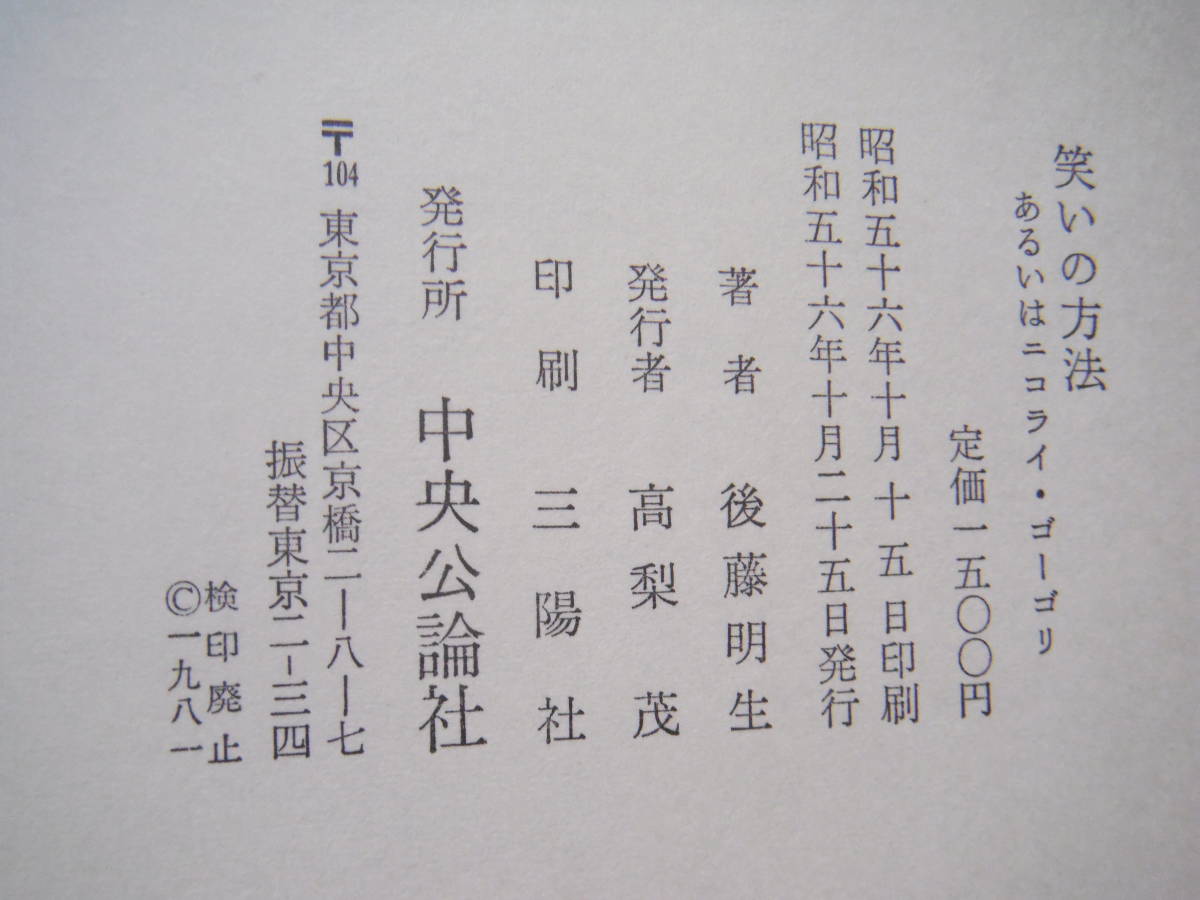 笑いの方法
あるいはニコライ・ゴーゴリ
定価一五〇〇円
昭和五十六年十月 十 五 日印刷
昭和五十六年十月二十五日発行
著者 後藤明生
発行者 高梨茂
印刷 三陽社
発行所 中央公論社
〒104 東京都中央区京橋二―八―七
振替東京二―三四
検印廃止
©一九八一